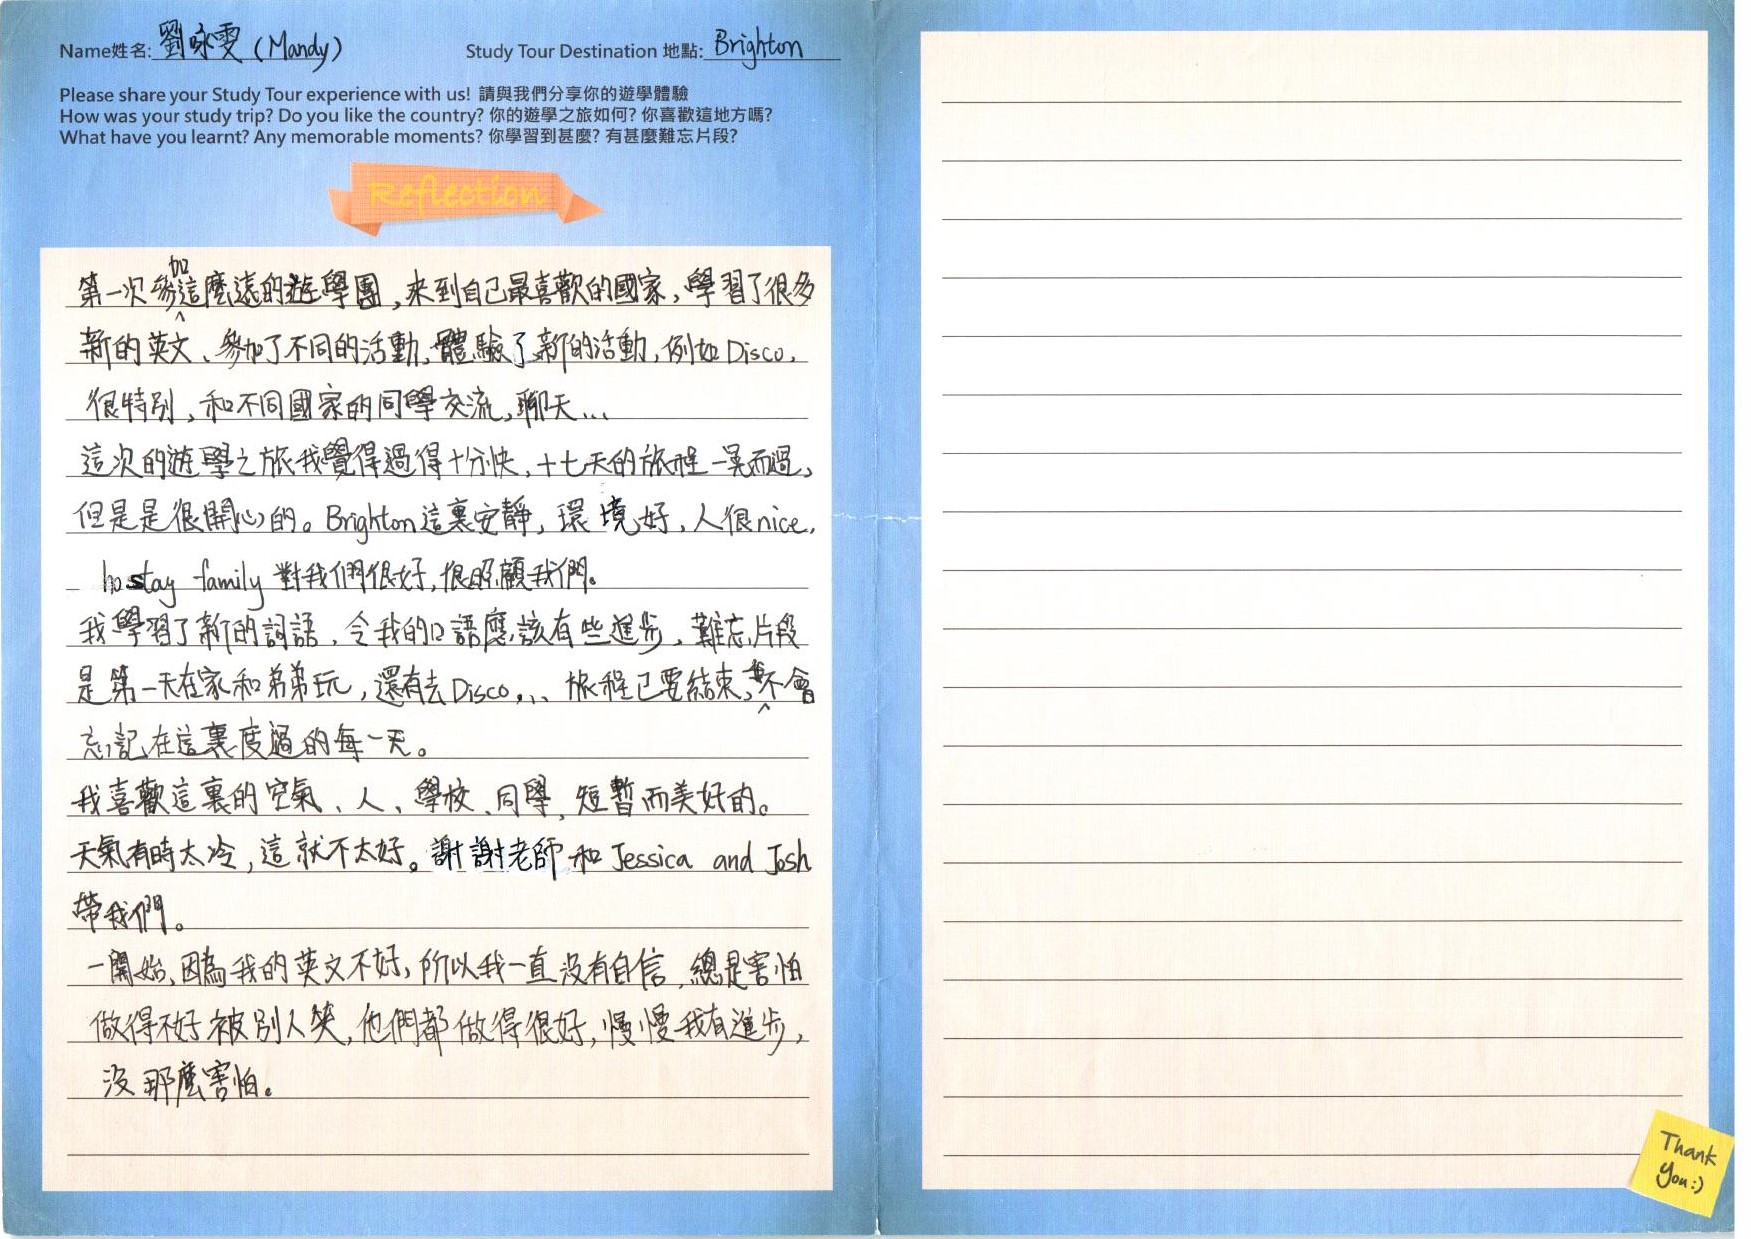 Name姓名: 劉咏雯 (Mandy) Study Tour Destination 地點: Brighton
Please share your Study Tour experience with us! 請與我們分享你的遊學體驗
How was your study trip? Do you like the country? 你的遊學之旅如何? 你喜歡這地方嗎?
What have you learnt? Any memorable moments? 你學習到甚麼? 有甚麼難忘片段?
Reflection
第一次參加這麼遠的遊學團,來到自己最喜歡的國家,學習了很多
新的英文、參加了不同的活動,體驗了新的活動,例如Disco,
很特別,和不同國家的同學交流,聊天...
這次的遊學之旅我覺得過得十分快,十七天的旅程一晃而過,
但是是很開心的。Brighton這裏安靜,環境好,人很nice,
hostay family 對我們很好,很照顧我們。
我學習了新的詞語,令我的口語應該有些進步,難忘片段
是第一天在家和弟弟玩,還有去Disco... 旅程已要結束,不會
忘記在這裏度過的每一天。
我喜歡這裏的空氣、人、學校、同學,短暫而美好的。
天氣有時太冷,這就不太好。謝謝老師和Jessica and Josh
帶我們。
一開始,因為我的英文不好,所以我一直沒有自信,總是害怕
做得不好被別人笑,他們都做得很好,慢慢我有進步,
沒那麼害怕。
Thank
You:)